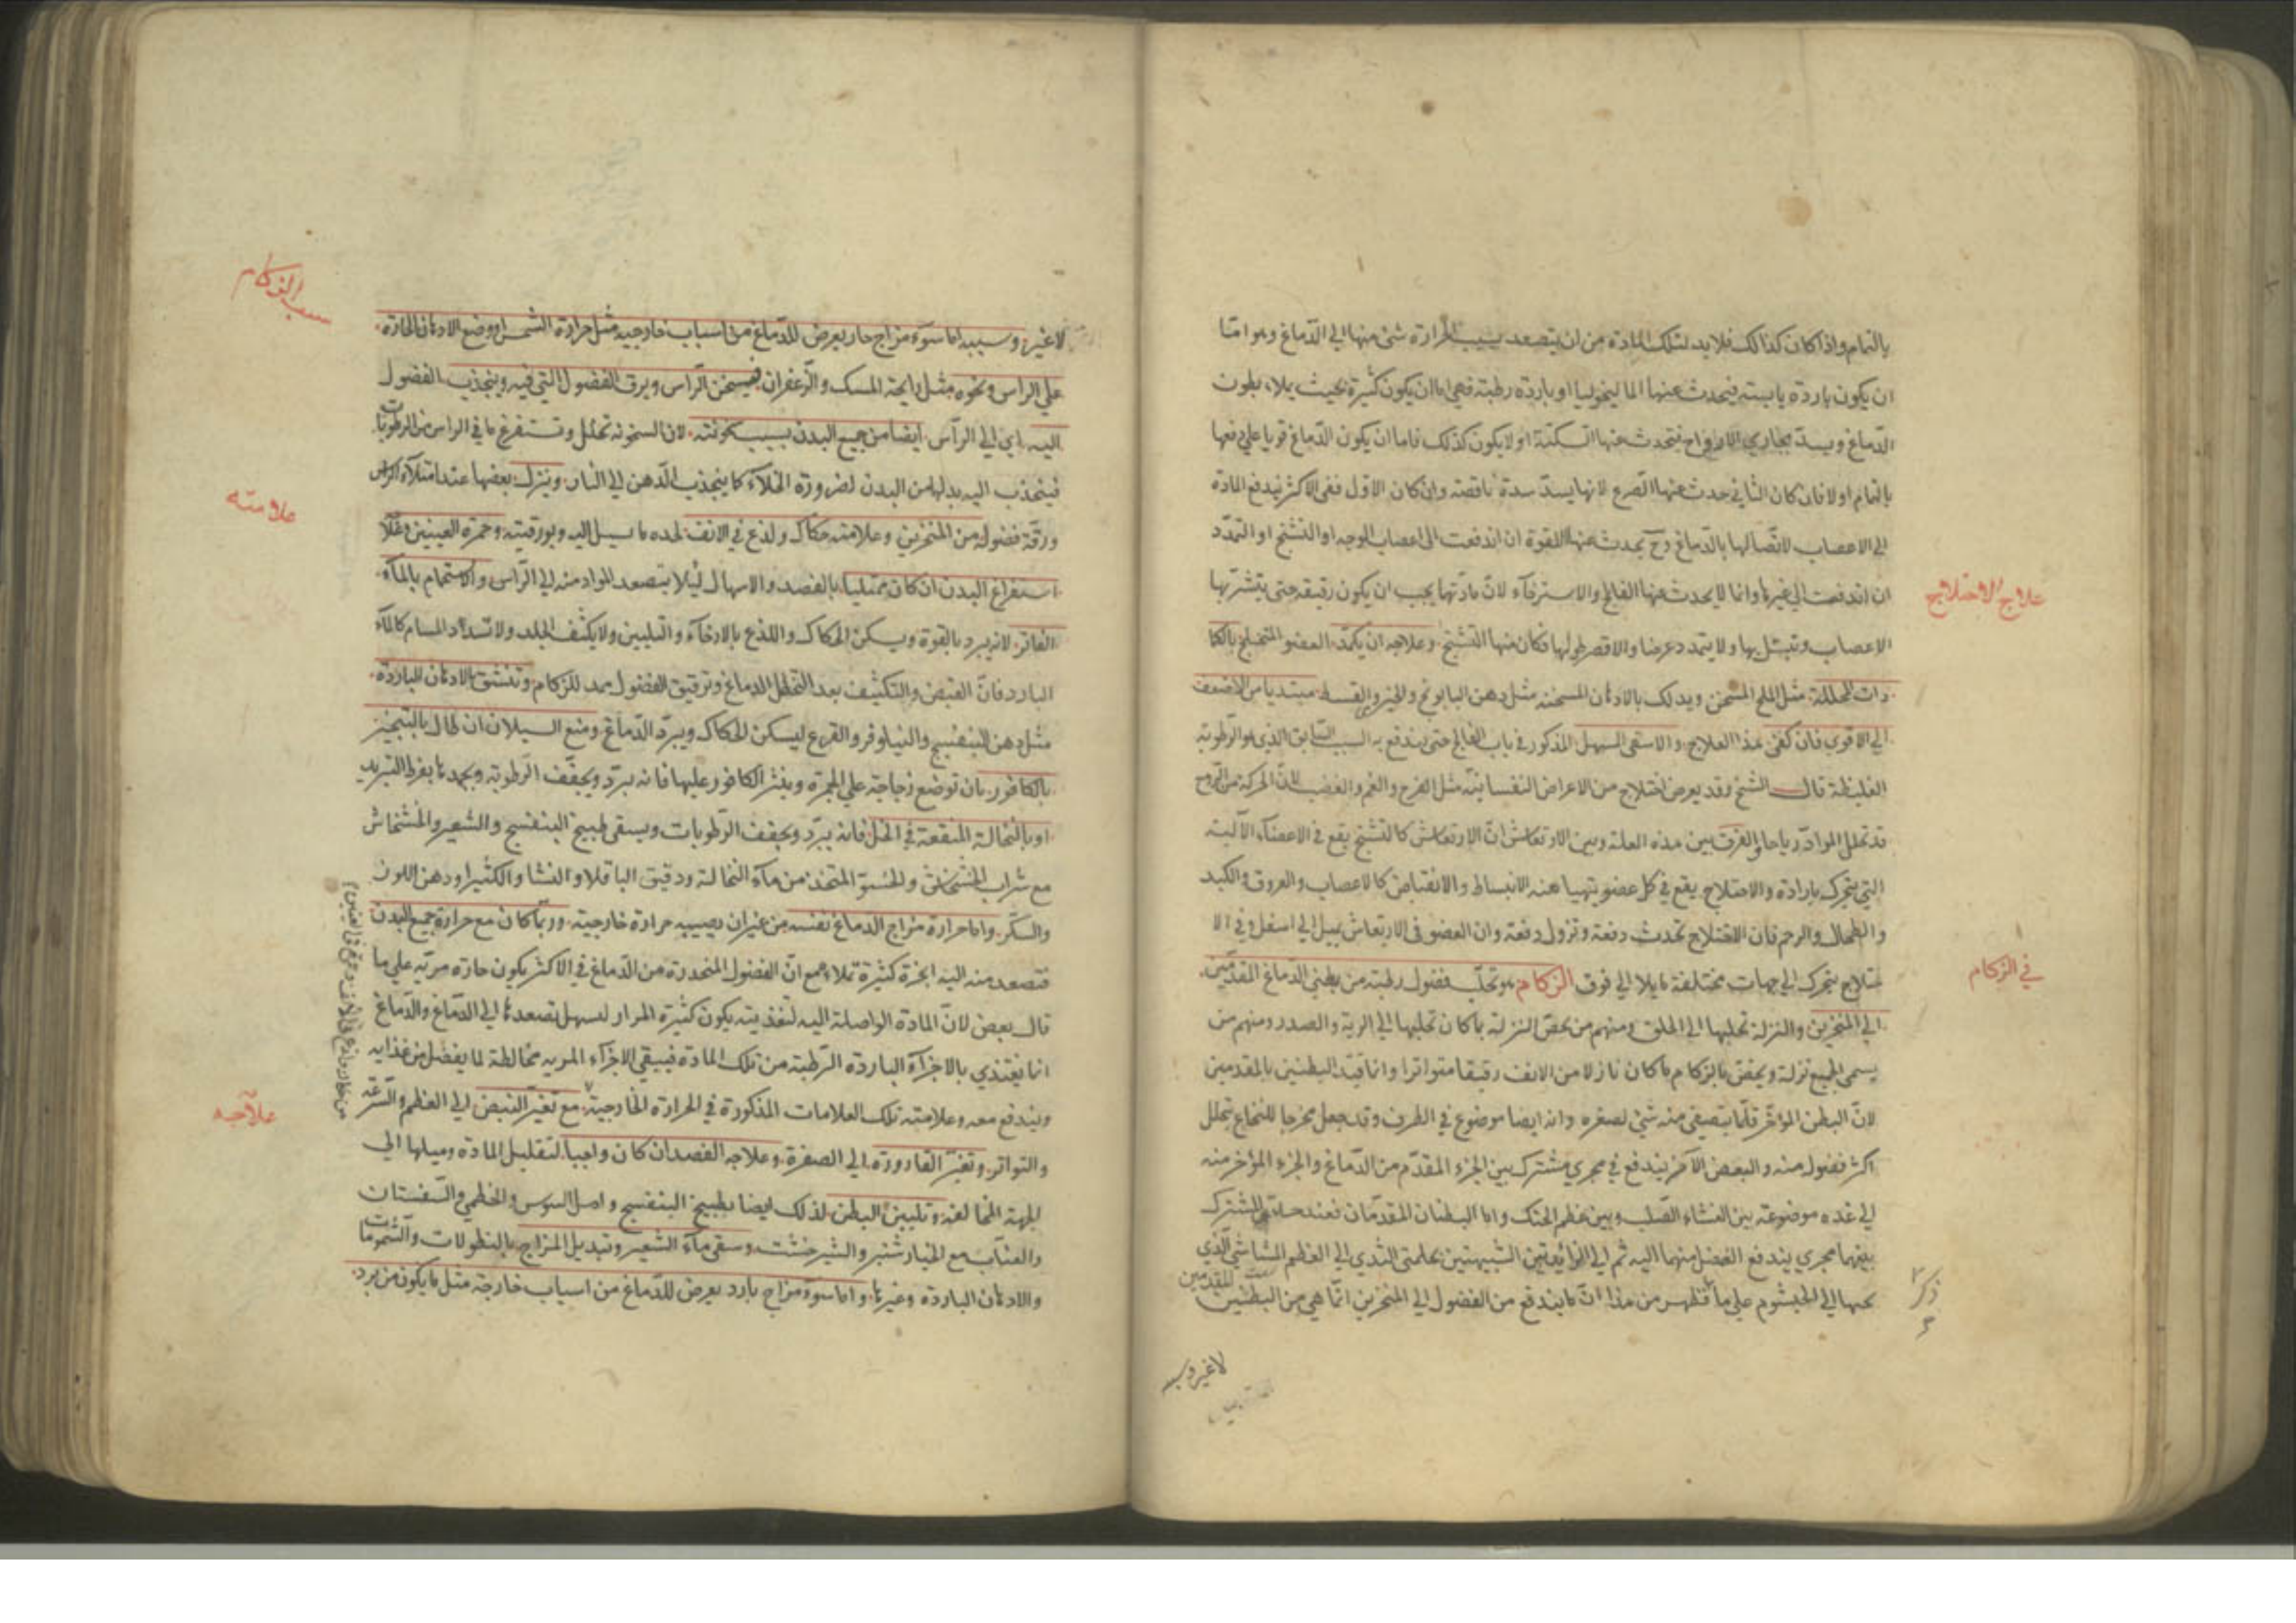 بالتمام واذا كان كذلك فلا بد لتلك المادة من ان يتصعد بسبب الحرارة شئ منها الي الدماغ وهو امّا
ان يكون باردة يابسة فيحدث عنها الماليخوليا او باردة رطبة فهي اما ان يكون كثيرة بحيث يملاء بطون
الدماغ ويسدّ مجاري الارواح فتحدث عنها السكتة او لا يكون كذلك فاما ان يكون الدماغ قويا علي دفعها
بالتمام اولا فان كان الثاني حدث عنها الصرع لانها يسدّ سدة ناقصة وان كان الاول ففي الاكثر يندفع المادة
الي الاعصاب لاتّصالها بالدماغ وحّ يحدث عنها اللقوة ان اندفعت الي اعصاب الوجه او التشنج او التمدّد
ان اندفعت الي غيرها وانما لا يحدث عنها الفالج والاسترخاء لانّ مادّتها يجب ان يكون رقيقة حتى يتشرّبها
الاعصاب وتبتلّ بها ولا يتمدد عرضا والا قصر طولها فكان منها التشنج وعلاجه ان يكمّد العضو المختلج بالكما
دات المحللة مثل الملح المسخن ويدلك بالادهان المسخنة مثل دهن البابونج والخيري والقسط مبتديا من الاضعف
الي الاقوي فان كفى هذا العلاج والا سقى المسهل المذكور في باب الفالج حتى يندفع به السبب السابق الذي هو الرطوبة
الغليظة قال الشيخ وقد يعرض اختلاج من الاعراض النفسانية مثل الفرح والغم والغضب لانّ الحركة من الروح
قد تحلل الموادّ رياحا والفرق بين هذه العلة وبين الارتعاش انّ الارتعاش كالتشنج يقع في الاعضاء الآلية
التي يتحرك بارادة والاختلاج يقع في كل عضو يتهيا عنه الانبساط والانقباض كالاعصاب والعروق والكبد
والطحال والرحم فان الاختلاج تحدث دفعة وتزول دفعة وان العضو في الارتعاش يميل الي اسفل وفي الا
ختلاج يتحرك الي جهات مختلفة مايلا الي فوق الزكام هو تحلّب فضول رطبة من بطني الدماغ المقدمين
الي المنخرين والنزلة تحلبها الي الحلق ومنهم من يخصّ النزلة بما كان تحلبها الي الرية والصدر ومنهم من
يسمى الجميع نزلة ويخصّ بالزكام ما كان نازلا من الانف رقيقا متواترا وانما قيّد البطنين بالمقدمين
لانّ البطن المؤخّر قلّما يتصفي منه شئ لصغره وانه ايضا موضوع في الطرف وقد جعل مخرجا للنخاع يتحلل
اكثر فضول منه والبعض الآخر يندفع في مجري مشترك بين الجزء المقدّم من الدماغ والجزء المؤخر منه
الي غده موضوعة بين الغشاء الصّلب وبين عظم الحنك واما البطنان المقدّمان فعند الحد المشترك
بينهما مجري يندفع الفضل منهما اليه ثم الي الزائدتين الشبيهتين بحلمتي الثدي الي العظم المشاشي الذي
بحبها الي الخيشوم علي ما ظهر من هذا انّ ما يندفع من الفضول الي المنخرين انّما هي من البطنين
للمقدمين
لا غير وسببه
علاج الاختلاج
في الزكام
لا غير وسببه اما سوء مزاج حار يعرض للدماغ من اسباب خارجية مثل حرارة الشمس او وضع الادهان الحارة
علي الراس ونحوه مثل رايحة المسك والزعفران فيسخن الراس ويرق الفضول التي فيه وينجذب الفضول
اليه اي الي الرأس ايضا من جميع البدن بسبب سخونته لان السخونة تحلل وتستفرغ ما في الراس من الرطوبات
فينجذب اليه بدلها من البدن لضرورة الخلاء كما ينجذب الدهن الي النار وينزل بعضها عند امتلاء الراس
ورقّة فضوله من المنخرين وعلامته حكاك ولذع في الانف لحده ما يسيل اليه وبورقيته وحمرة العينين وعلا
استفراغ البدن ان كان ممتليا بالفصد والاسهال ليلا يتصعد المواد منه الي الرّاس والاستحمام بالماء
الفاتر لانه يبرد بالقوة ويسكن الحكاك واللذع بالارخاء والتليين ولا يكثف الجلد ولا تسدّد المسام كالماء
البارد فانّ القبض والتكثيف بعد التحلل الدماغ وترقيق الفضول ممد للزكام وتنشق الادهان الباردة
مثل دهن البنفسج والنيلوفر والقرع ليسكن الحكاك ويبرّد الدماغ ومنع السيلان ان طال بالتبخير
بالكافور بان توضع زجاجة علي المجمرة وينثر الكافور عليها فانه يبرّد ويجفّف الرطوبة ويجمدها بفرط التبريد
او بالنخالة المنقعة في الخل فانه يبرّد ويجفف الرطوبات ويسقي طبيخ البنفسج والشعير والخشخاش
مع شراب الخشخاش والحسو المتخذ من ماء النخالة ودقيق الباقلا والنشا والكثيرا ودهن اللوز
والسكّر واما حرارة مزاج الدماغ نفسه من غيران يصيبه حرارة خارجية وربّما كان مع حرارة جميع البدن
فتصعد منه اليه ابخرة كثيرة تملاءه مع انّ الفضول المنحدرة من الدماغ في الاكثر يكون حارة مريّة علي ما
قال بعض لانّ المادة الواصلة اليه لتغذيته يكون كثيرة المرار لسهل تصعدها الي الدماغ والدماغ
انما يغتذي بالاجزاء الباردة الرطبة من تلك المادة فيبقي الاجزاء المرية مخالطة لما يفضل من غذايه
ويندفع معه وعلامته تلك العلامات المذكورة في الحرارة الخارجية مع تغيّر النبض الي العظم والسرعة
والتواتر وتغيّر القارورة الي الصفرة وعلاجه الفصد ان كان واجبا لتقليل المادة وميلها الي
الجهة المخالفة وتليين البطن لذلك ايضا بطبيخ البنفسج واصل السوس والخطمي والسفستان
والعناب مع الخيار شنبر والشيرخشت وسقي ماء الشعير وتبديل المزاج بالنطولات والشمومات
والادهان الباردة وغيرها واما سوء مزاج بارد يعرض للدماغ من اسباب خارجة مثل ما يكون من برد
سبب الزكام
علامته
علاجه